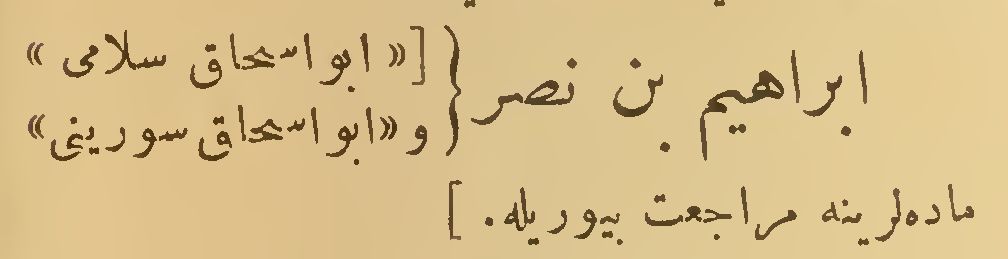 ابراهیم بن نصر { [« ابو اسحاق سلامی »
و «ابو اسحاق سورینی»
ماده‌لرینه مراجعت بیوریله. ]